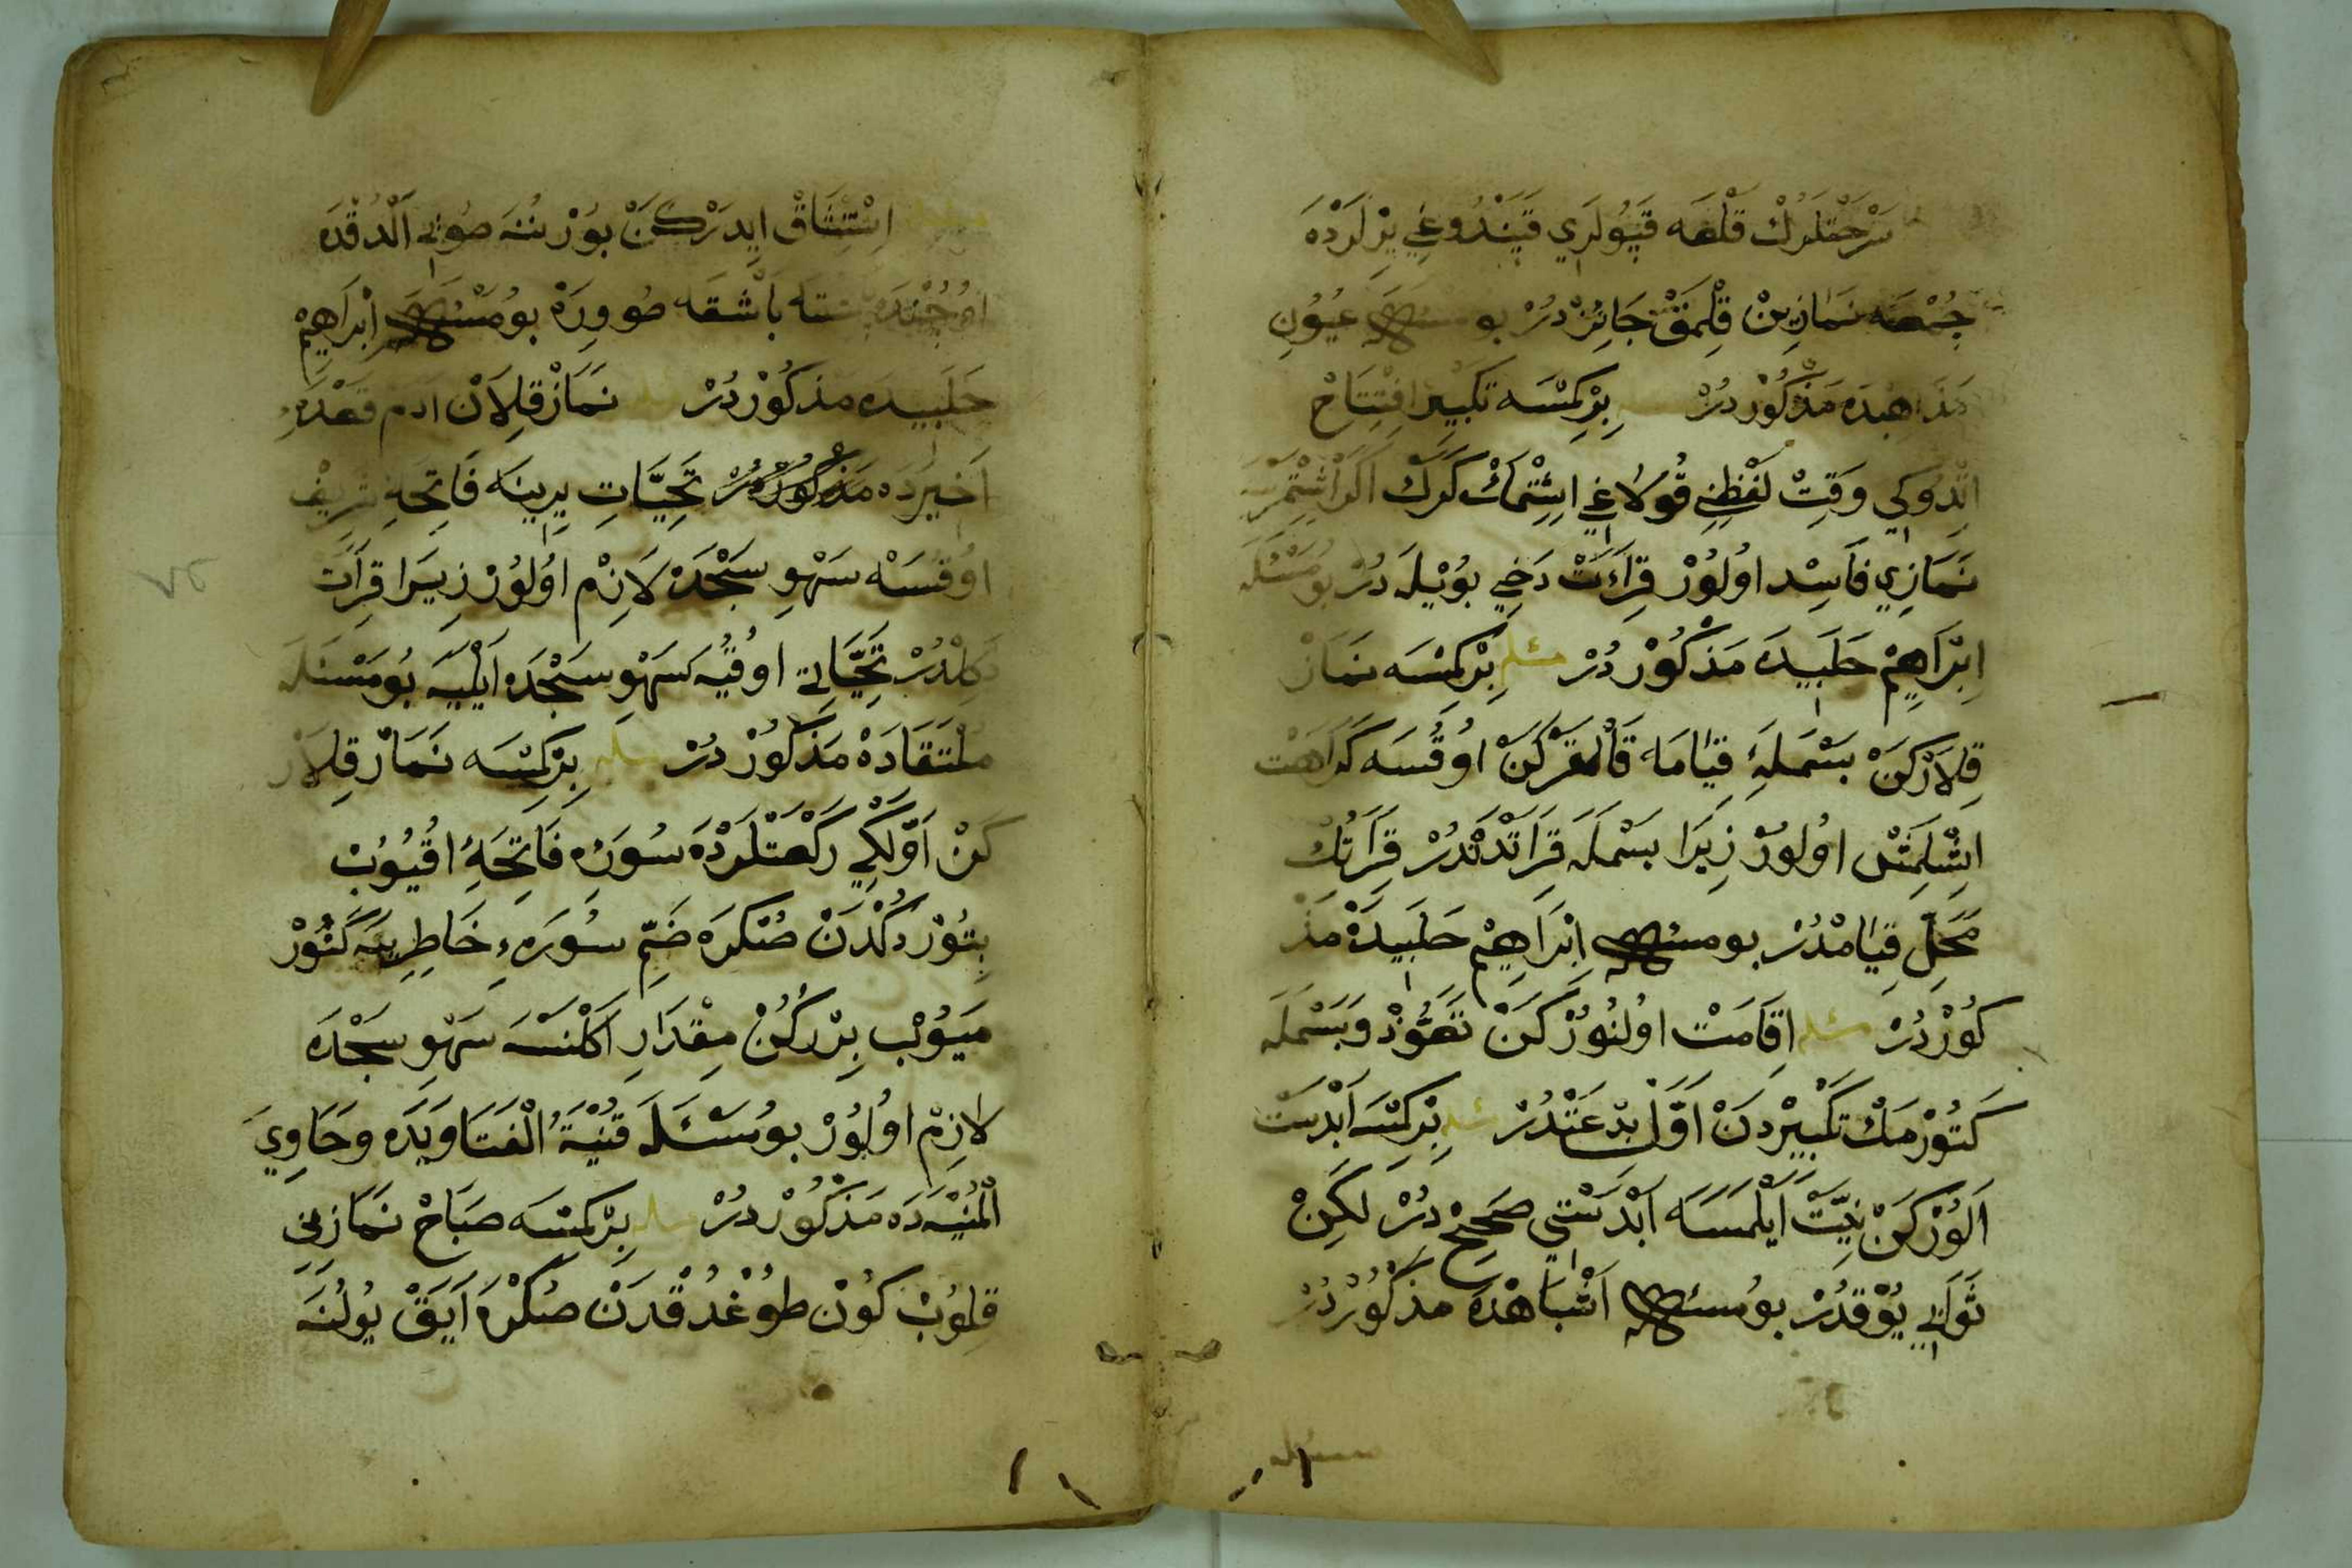 سَرْحَتْلَرُكْ قَلْعَه قَپُولَرِي قَپَنْدُوغِي يِرْلَرْدَه
جُمْعَه نَمَازِينْ قِلْمَقْ جَائِزْ دُرْ بو مسئله عيُونِ
مَذَاهِبْدَه مَذْكُورْدُرْ بِرْ كِمْسَه تَكْبِيرِ افْتِتَاحْ
اتْدُوكِي وَقِتْ لَفْظِنِي قُولَاغِي اِشِتْمَكْ كَرَكْ اَكَرْ اشِتْمَزْسَه
نَمَازِي فَاسِد اولُورْ قِرَاءَتْ دَخِي بُويْلَه دُرْ بومَسْئَلَه
اِبْرَاهِيمْ حَلَبِيدَه مَذْكُورْ دُرْ مسئله بِرْ كِمْسَه نَمَازْ
قِلَارْكَنْ بَسْمَلَهِٔ قيَامَه قَالْقَرْكَنْ اوُقُسَه كَرَاهَتْ
اِشْلَمِشْ اولُورْ زِيرَا بَسْمَلَه قِرَاتْدَنْدُرْ قِرَاتُكْ
مَحَلِّ قِيَامْدُرْ بو مسئله اِبْرَاهِيمْ حَلَبِيدَهْ مَذْ
كُورْدُرْ مسئله اِقَامَتْ اولنُورْكَنْ تَعَوُّذْ وَبَسْمَلَه
كَتُورْمَكْ تَكْبِيرْدَنْ اَوَّلْ بِدْعَتْدُرْ مسئله بِرْكِمْسَه اَبْدَسْت
اَلُورْكَنْ نِيَّتْ اَيْلَمَسَه اَبْدَسْتِي صَحِيحْ دُرْ لكِنْ
ثَوَابِي يُوقْدُرْ بو مسئله اَشْبَاهْدَه مَذكُورْدُرْ
مسئله
اِسْتِنْشَاقْ ايِدَرْكَنْ بُورْنُنَه صُويِ اَلْدُقْدَه
اوُجُنْدَه باَشْقَه صُو وِرَهْ بو مسئله اِبْرَاهِيمْ
حَلَبِيدَه مَذكُورْدُرْ مسئله نَمَازْ قِلَانْ ادَم قَعْدَهِٔ
اَخيرَدَه تَحِيَّاتِ يِرِينَه فَاتِحَهِٔ شَرِيفْ
اوُقُسَه سَهْوِ سَجْدَه لَازِمْ اوُلُورْ زِيرَا قِرَآتْ
دَكِلْدُرْ تَحِيَّاتِي اوقُيَه سَهْوِ سَجْدَه اَيْلِيَه بُومَسْئَلَه
مُلْتَقَادَهْ مَذْكُورْ دُرْ مسئله بِرْ كِمْسَه نَمَازْ قِلَارْ
كَنْ اَوَّلْكِي رَكْعَتْلَرْدَه سُورَهِٔ فَاتِحَهِٔ اُقُيُوبْ
بِتُورْدُكْدَنْ صُنْكَرَه ضَمِّ سُورَهِء خَاطِرِينَه كَتُورْ
مَيُوبْ بِرْ رُكُنْ مِقْدَارِ اَكْلَنْسَه سَهْوِ سَجْدَه
لازِمْ اوُلُورْ بومَسْئَلَه قُنْيَةُ الْفَتَاوَيدَه وَحَاوِيِ
الْمُنْيَه دَه مَذْكُورْدُرْ مسئله بِرْ كِمْسَه صَبَاحْ نَمَازِينِ
قِلوُبْ كُونْ طُوغْدُقْدَنْ صُنْكَرَه اَيَقْ يُولُنَه